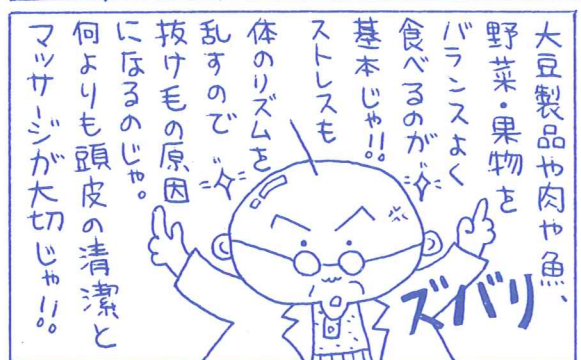 大豆製品や肉や魚、
野菜・果物を
バランスよく
食べるのが
基本じゃ!!
ストレスも
体のリズムを
乱すので
抜け毛の原因
になるのじゃ。
何よりも頭皮の清潔と
マッサージが大切じゃ!!
ズバリ